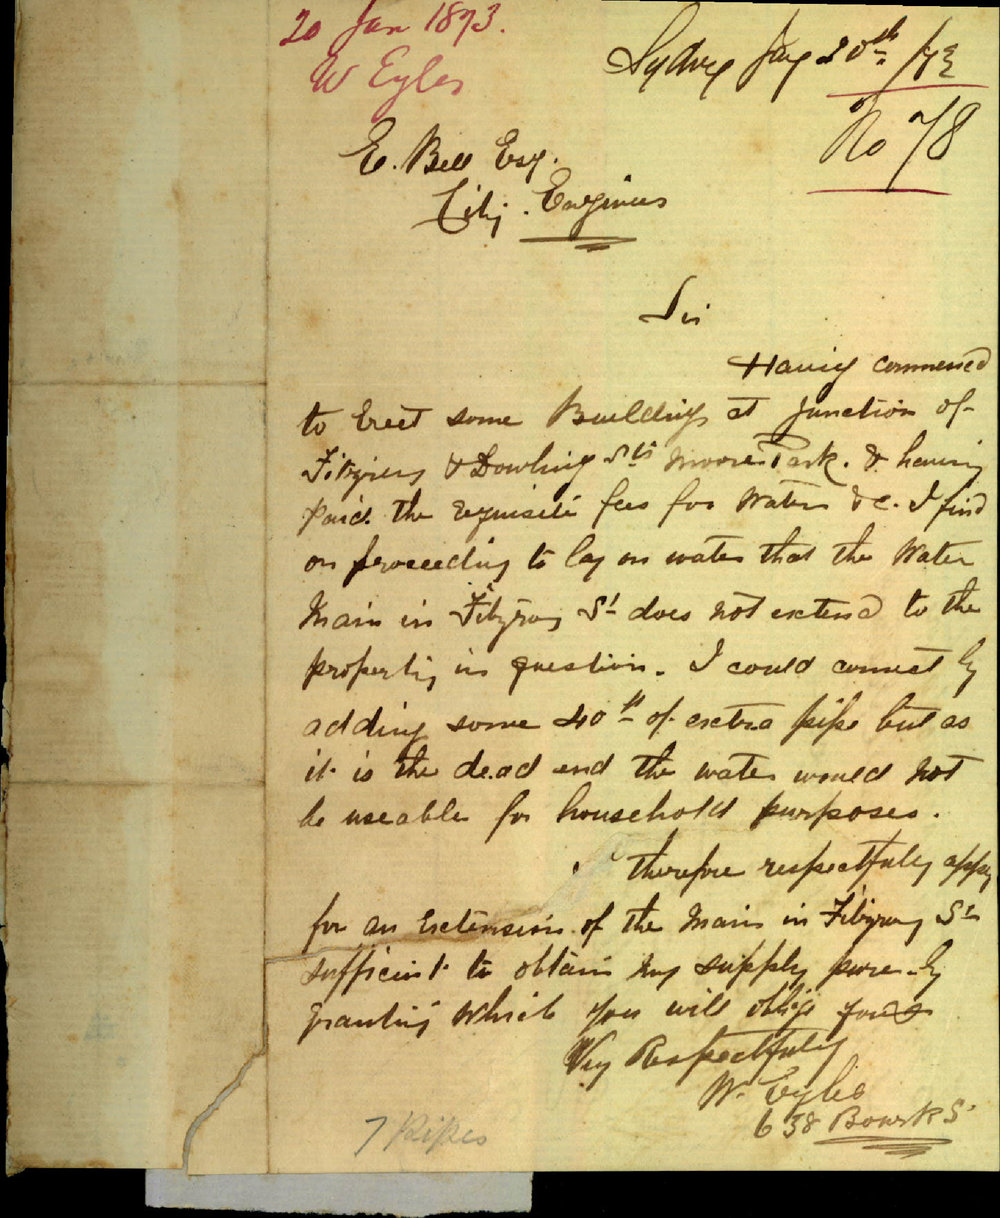 20 Jan 1873.
W Eyles
Sydney Jay 20th /73
No 78
E. Bell Esq.
City. Engineer
Sir
Having commenced
to Erect some Buildings at junction of
Fitzroy & Dowling Sts Moore Park. & having
paid. the requisite fees for Water &c. I find
on proceeding to lay on water that the Water
Main in Fitzroy St does not extend to the
property in question. I could connect by
adding some 40 ft of extra pipe but as
it is the dead end the water would not
be useable for household purposes.
I therefore respectfully apply
for an Extension of the Main in Fitzroy St
sufficient to obtain my supply pure - by
granting which you will oblige yours
Very Respectfully
W. Eyles
638 Bourk St
7 Pipes